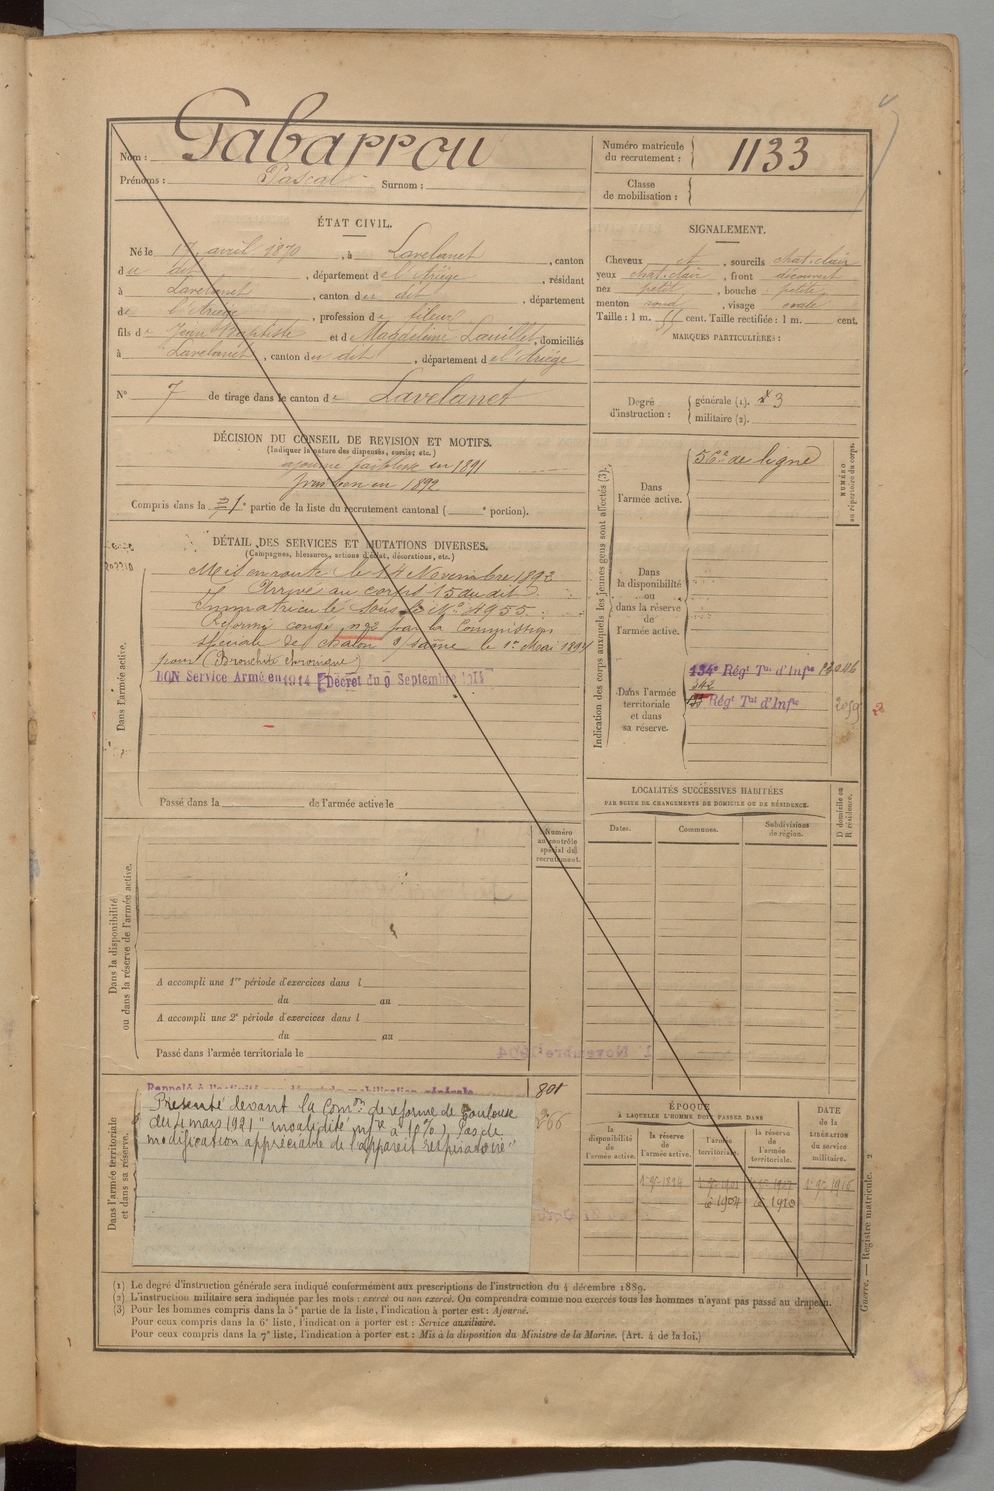 Nom : Gabarrou
Prénoms : Pascal Surnom :
Numéro matricule du recrutement : 1133
Classe de mobilisation :
ÉTAT CIVIL.
Né le 17 avril 1870, à Lavelanet, canton
du dit, département de l'Ariège, résidant
à Lavelanet, canton du dit, département
de l'Ariège, profession de fileur
fils de Jean Baptiste et de Magdeleine, domiciliés
à Lavelanet, canton du dit, département de l'Ariège
N° 7 de tirage dans le canton de Lavelanet
SIGNALEMENT.
Cheveux et, sourcils chat. clair
yeux chat. clair, front découvert
nez petit, bouche petite
menton rond, visage ovale
Taille : 1 m. cent. Taille rectifiée : 1 m. cent.
MARQUES PARTICULIÈRES :
Degré d'instruction : générale (1). 3
militaire (2).
DÉCISION DU CONSEIL DE REVISION ET MOTIFS.
(Indiquer la nature des dispenses, sursis, etc.)
ajourné faiblesse en 1891
bon en 1892
Compris dans la partie de la liste du recrutement cantonal ( portion).
DÉTAIL DES SERVICES ET MUTATIONS DIVERSES.
(Campagnes, blessures, actions d'éclat, décorations, etc.)
Dans l'armée active.
Mis en route le 14 Novembre 1892
Arrivé au corps 15 du dit
Immatriculé sous le N° 4955.
Réformé congé n° 2 par la Commission
spéciale de Chalon s/ Saône le 1er Mai 1894
pour (Bronchite chronique)
BON Service Armé en 1914 Décret du 9 Septembre 1914
Passé dans la de l'armée active le
Indication des corps auxquels les jeunes gens sont affectés (3).
NUMÉRO au répertoire du corps.
Dans l'armée active.
56e de ligne
Dans la disponibilité ou dans la réserve de l'armée active.
Dans l'armée territoriale et dans sa réserve.
134e Régt Tal d'Infie
Régt Tal d'Infie
LOCALITÉS SUCCESSIVES HABITÉES
PAR SUITE DE CHANGEMENTS DE DOMICILE OU DE RÉSIDENCE.
Dates. Communes. Subdivisions de région. D domicile ou R résidence.
Dans la disponibilité ou dans la réserve de l'armée active.
Numéro au contrôle spécial du recrutement.
A accompli une 1re période d'exercices dans l
du au
A accompli une 2e période d'exercices dans l
du au
Passé dans l'armée territoriale le
Dans l'armée territoriale et dans sa réserve.
Présenté devant la Comon de réforme de Toulouse
du mars 1921 "invalidité infre à 10%. Pas de
modification appréciable de l'appareil respiratoire"
ÉPOQUE
À LAQUELLE L'HOMME DOIT PASSER DANS
la disponibilité de l'armée active. la réserve de l'armée active. l'armée territoriale. la réserve de l'armée territoriale.
DATE de la LIBÉRATION du service militaire.
(1) Le degré d'instruction générale sera indiqué conformément aux prescriptions de l'instruction du 4 décembre 1889.
(2) L'instruction militaire sera indiquée par les mots : exercé ou non exercé. On comprendra comme non exercés tous les hommes n'ayant pas passé au drapeau.
(3) Pour les hommes compris dans la 5e partie de la liste, l'indication à porter est : Ajourné.
Pour ceux compris dans la 6e liste, l'indication à porter est : Service auxiliaire.
Pour ceux compris dans la 7e liste, l'indication à porter est : Mis à la disposition du Ministre de la Marine. (Art. 4 de la loi.)
Guerre. — Registre matricule. 2